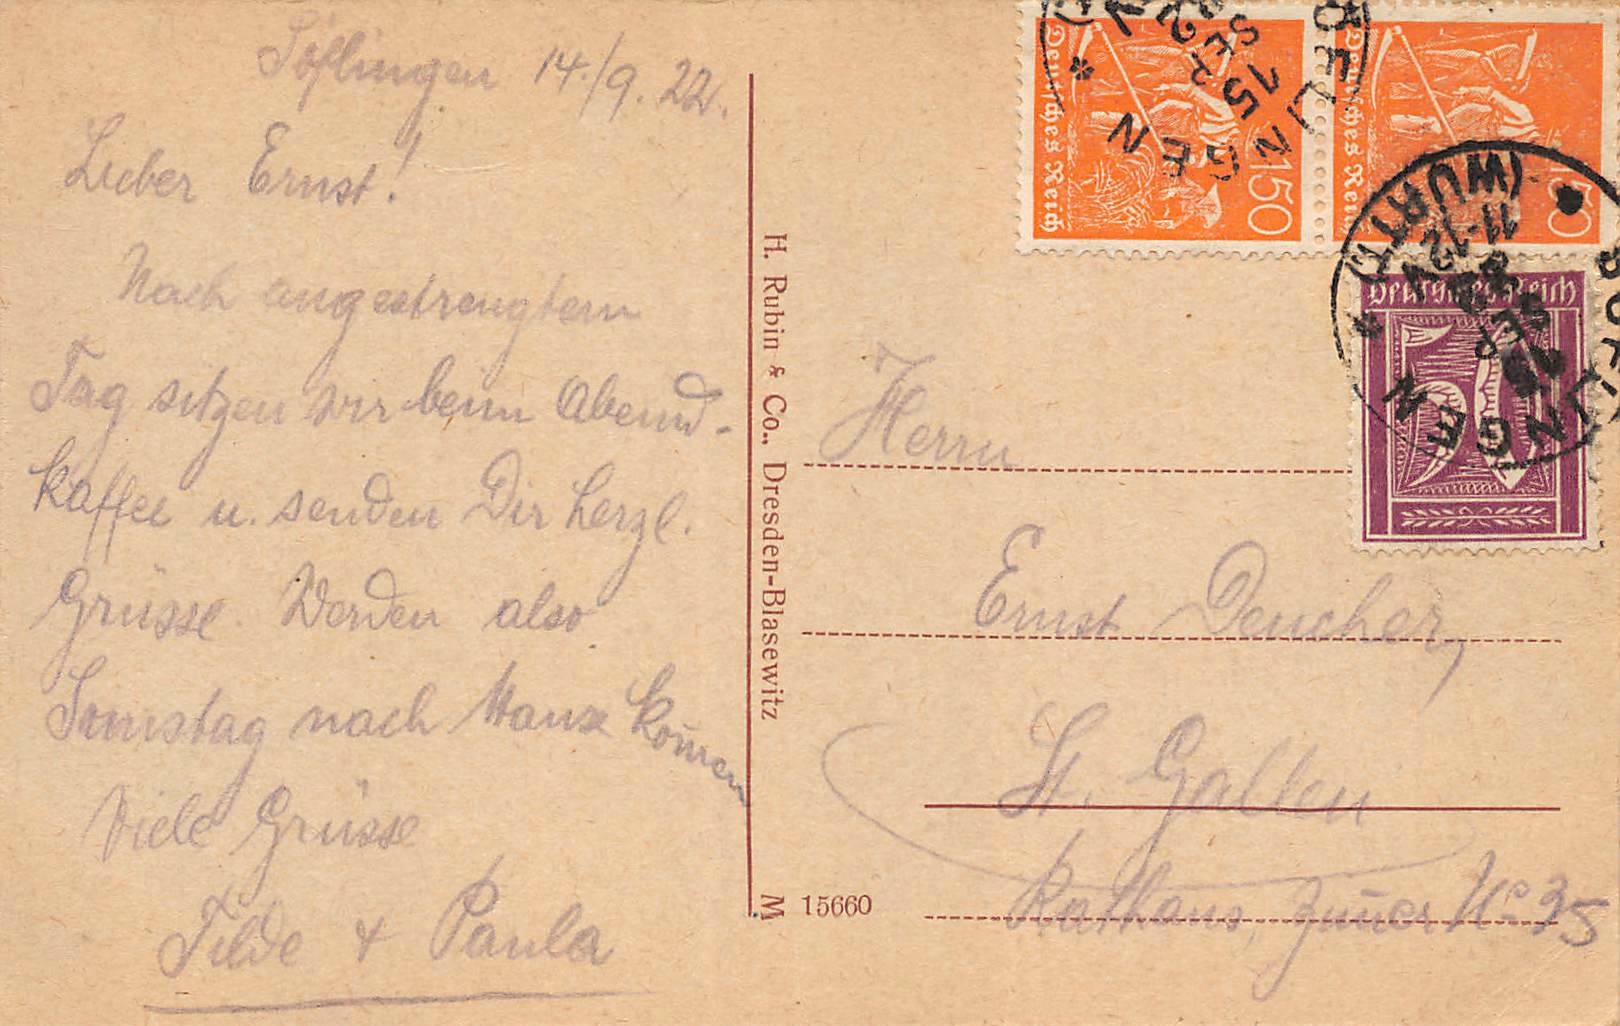 Söflingen 14./9. 22.
Lieber Ernst!
Nach angestrengtem
Tag sitzen wir beim Abend-
kaffee u. senden Dir herzl.
Grüsse. Werden also
Samstag nach Hause kom̅en
Viele Grüsse
Tilde + Paula
H. Rubin & Co., Dresden-Blasewitz
M 15660
Deutsches Reich
150
Deutsches Reich
150
Deutsches Reich
SÖFLINGEN
15
SEP
SÖFLINGEN
(WÜRTT)
15
SEP
11-12 V
Herrn
Ernst Deucher,
St. Gallen
Rathaus, Zim̅er No 35